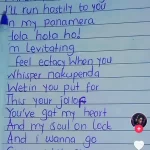 I'll run hastily to you
In my panamera
lola hola ho!
m levitating
I feel ectacy when you
Whisper nakupenda
Wetin you put for
This your jolof
You've got my heart
And my soul on lock
And I wanna go